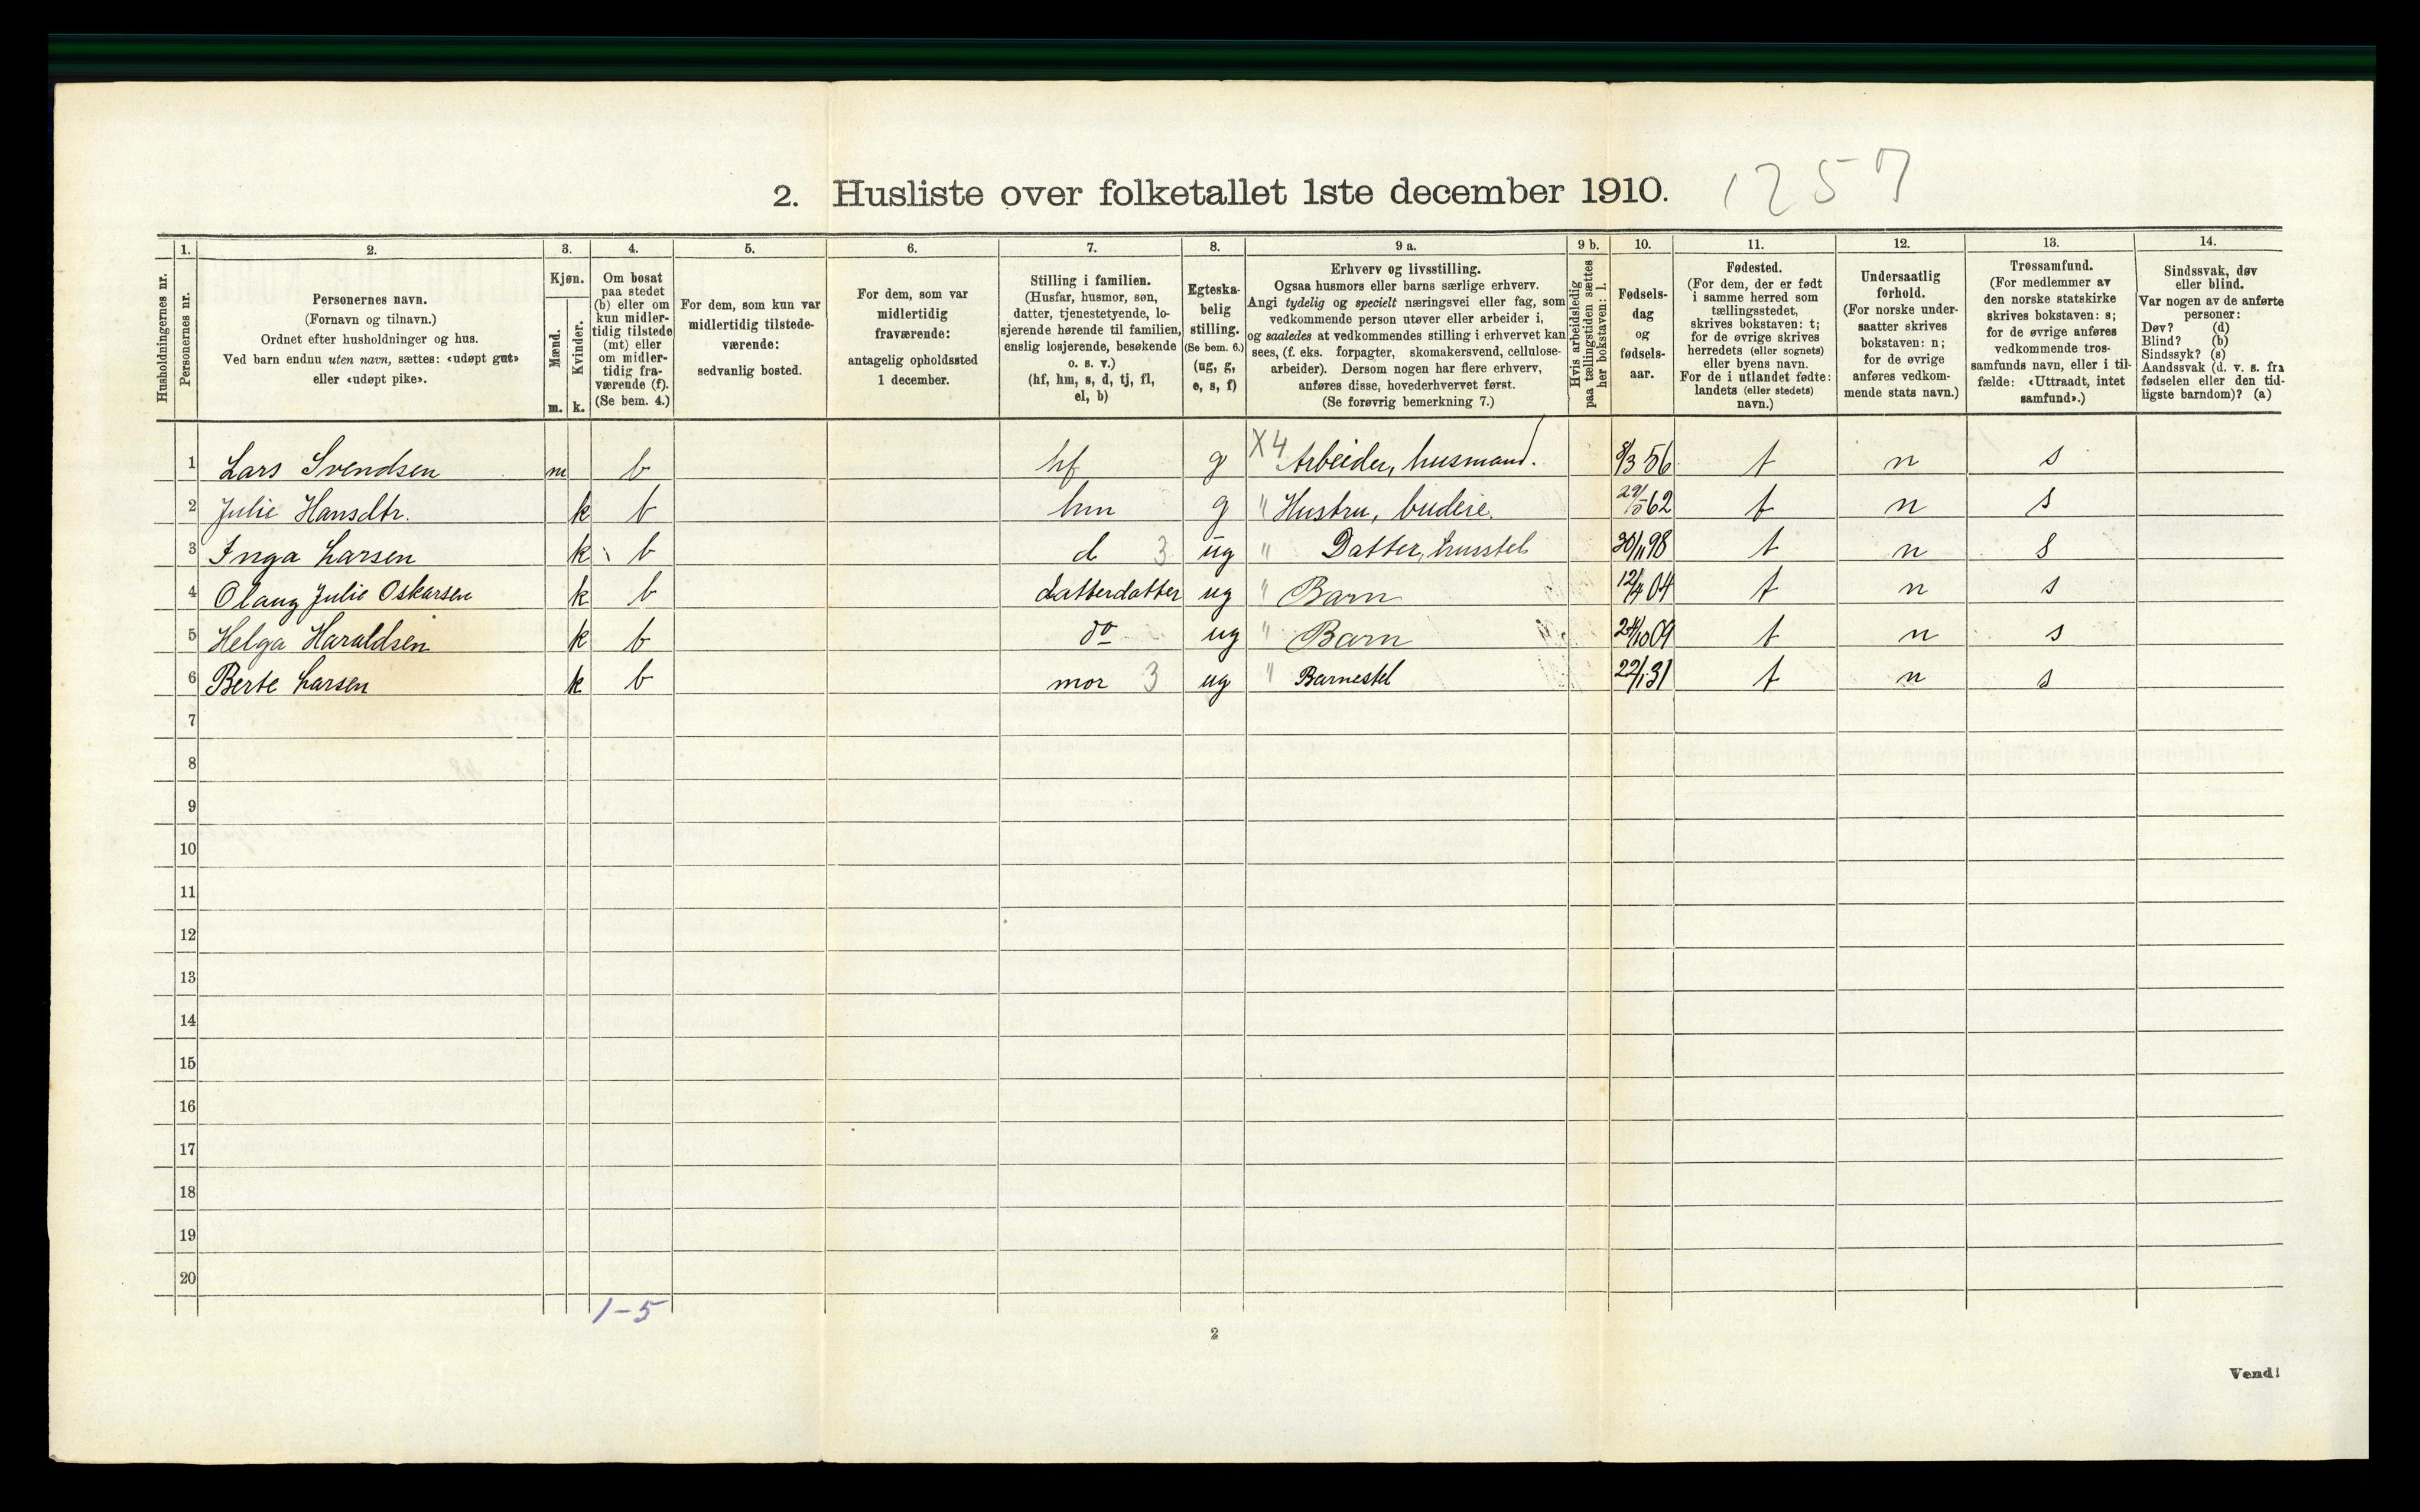 2. Husliste over folketallet 1ste december 1910. 1257
Husholdningernes nr.
1.
Personernes nr.
2.
Personernes navn.
(Fornavn og tilnavn.)
Ordnet efter husholdninger og hus.
Ved barn endnu uten navn, sættes: «udøpt gut»
eller «udøpt pike».
3.
Kjøn.
Mænd.
Kvinder.
m. k.
4.
Om bosat
paa stedet
(b) eller om
kun midler-
tidig tilstede
(mt) eller
om midler-
tidig fra-
værende (f).
(Se bem. 4.)
5.
For dem, som kun var
midlertidig tilstede-
værende:
sedvanlig bosted.
6.
For dem, som var
midlertidig
fraværende:
antagelig opholdssted
1 december.
7.
Stilling i familien.
(Husfar, husmor, søn,
datter, tjenestetyende, lo-
sjerende hørende til familien,
enslig losjerende, besøkende
o. s. v.)
(hf, hm, s, d, tj, fl,
el, b)
8.
Egteska-
belig
stilling.
(Se bem. 6.)
(ug, g,
e, s, f)
9 a.
Erhverv og livsstilling.
Ogsaa husmors eller barns særlige erhverv.
Angi tydelig og specielt næringsvei eller fag, som
vedkommende person utøver eller arbeider i,
og saaledes at vedkommendes stilling i erhvervet kan
sees, (f. eks. forpagter, skomakersvend, cellulose-
arbeider). Dersom nogen har flere erhverv,
anføres disse, hovederhvervet først.
(Se forøvrig bemerkning 7.)
9 b.
Hvis arbeidsledig
paa tællingstiden sættes
her bokstaven: l.
10.
Fødsels-
dag
og
fødsels-
aar.
11.
Fødested.
(For dem, der er født
i samme herred som
tællingsstedet,
skrives bokstaven: t;
for de øvrige skrives
herredets (eller sognets)
eller byens navn.
For de i utlandet fødte:
landets (eller stedets)
navn.)
12.
Undersaatlig
forhold.
(For norske under-
saatter skrives
bokstaven: n;
for de øvrige
anføres vedkom-
mende stats navn.)
13.
Trossamfund.
(For medlemmer av
den norske statskirke
skrives bokstaven: s;
for de øvrige anføres
vedkommende tros-
samfunds navn, eller i til-
fælde: «Uttraadt, intet
samfund».)
14.
Sindssvak, døv
eller blind.
Var nogen av de anførte
personer:
Døv? (d)
Blind? (b)
Sindssyk? (s)
Aandssvak (d. v. s. fra
fødselen eller den tid-
ligste barndom)? (a)
1 Lars Svendsen m b hf g X4 Arbeider, husmand. 8/3 56 t n s
2 Julie Hansdtr. k b hm g " Hustru, budeie. 29/5 62 t n s
3 Inga Larsen k b d 3 ug " Datter, husstel 30/11 98 t n s
4 Olaug Julie Oskarsen k b datterdatter ug " Barn 12/4 04 t n s
5 Helga Haraldsen k b do ug " Barn 24/10 09 t n s
6 Berte Larsen k b mor 3 ug " Barnestel 22/1 31 t n s
7
8
9
10
11
12
13
14
15
16
17
18
19
20
1-5
2
Vend!